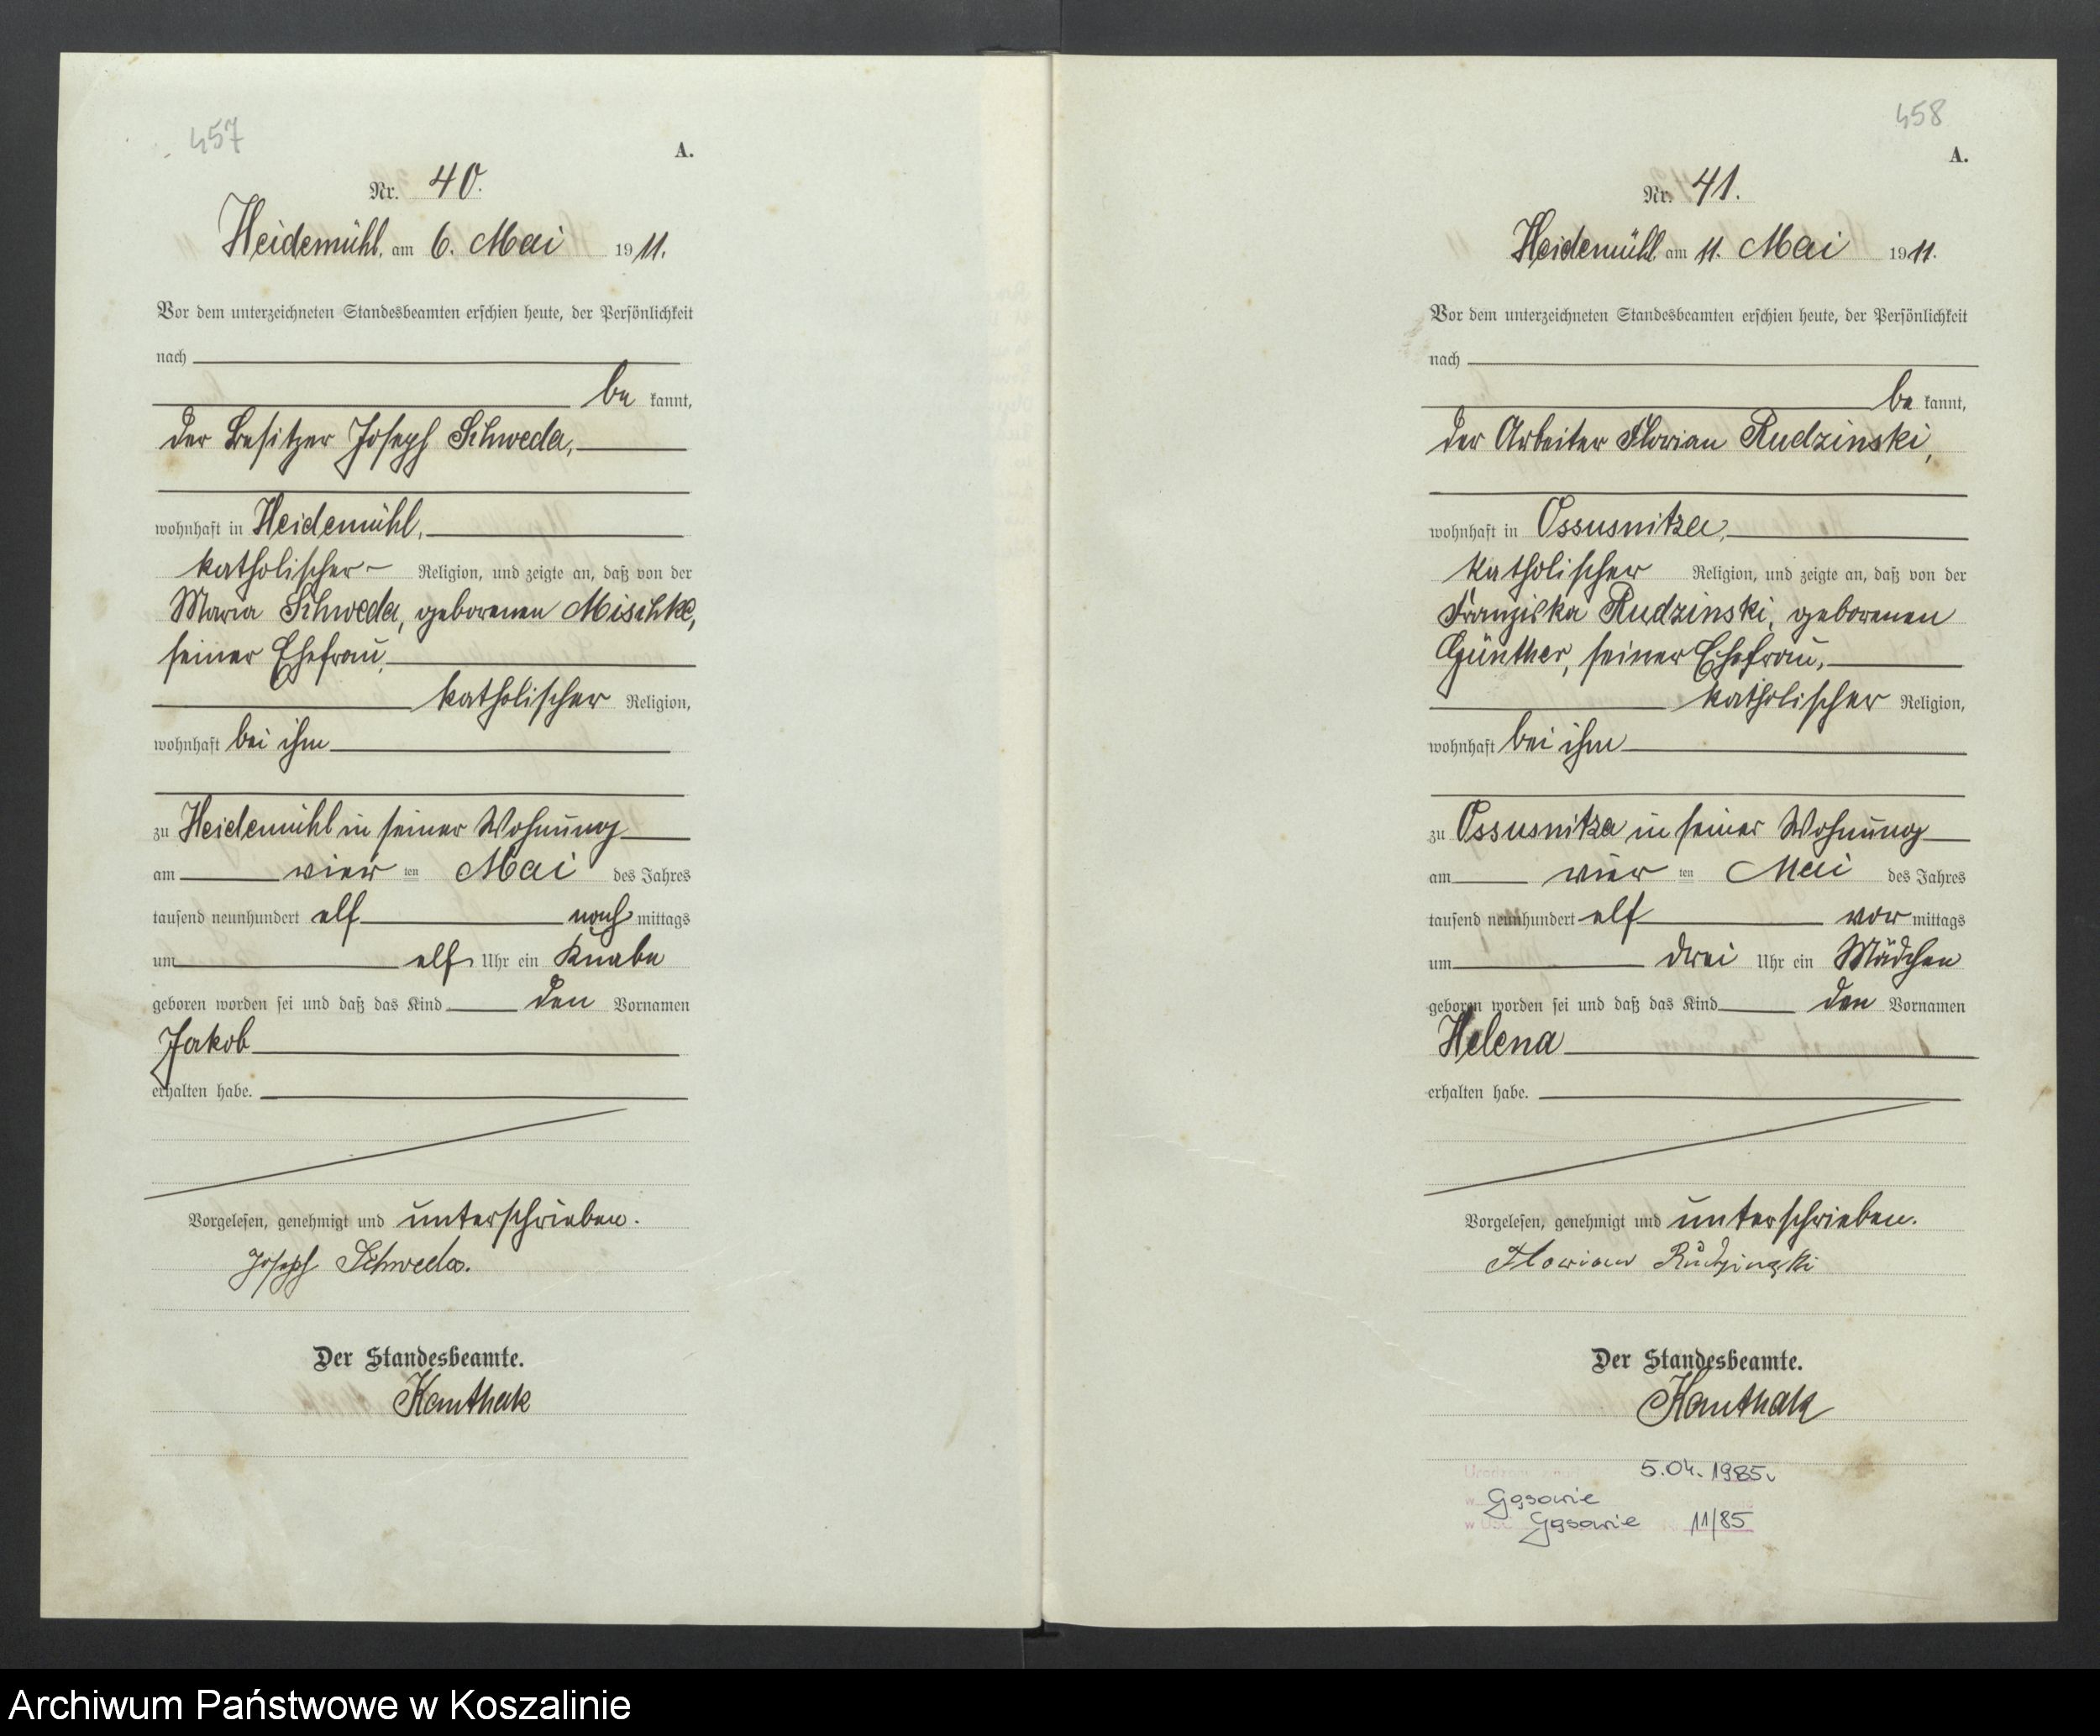 457
A.
Nr. 40.
Heidemühl, am 6. Mai 1911.
Vor dem unterzeichneten Standesbeamten erschien heute, der Persönlichkeit
nach
be kannt,
der Besitzer Joseph Schweda,
wohnhaft in Heidemühl,
katholischer Religion, und zeigte an, daß von der
Maria Schweda, geborenen Mischke,
seiner Ehefrau,
katholischer Religion,
wohnhaft bei ihm
zu Heidemühl in seiner Wohnung
am vier ten Mai des Jahres
tausend neunhundert elf nach mittags
um elf Uhr ein Knabe
geboren worden sei und daß das Kind den Vornamen
Jakob
erhalten habe.
Vorgelesen, genehmigt und unterschrieben.
Joseph Schweda.
Der Standesbeamte.
Kanthak
458
A.
Nr. 41.
Heidemühl am 11. Mai 1911.
Vor dem unterzeichneten Standesbeamten erschien heute, der Persönlichkeit
nach
be kannt,
der Arbeiter Florian Rudzinski,
wohnhaft in Ossusnitza,
katholischer Religion, und zeigte an, daß von der
Franziska Rudzinski, geborenen
Günther, seiner Ehefrau,
katholischer Religion,
wohnhaft bei ihm
zu Ossusnitza in seiner Wohnung
am vier ten Mai des Jahres
tausend neunhundert elf vor mittags
um drei Uhr ein Mädchen
geboren worden sei und daß das Kind den Vornamen
Helena
erhalten habe.
Vorgelesen, genehmigt und unterschrieben.
Florian Rudzinski
Der Standesbeamte.
Kanthak
5.04.1985
w Gąsawie
w USC Gąsawie 11/85
Archiwum Państwowe w Koszalinie